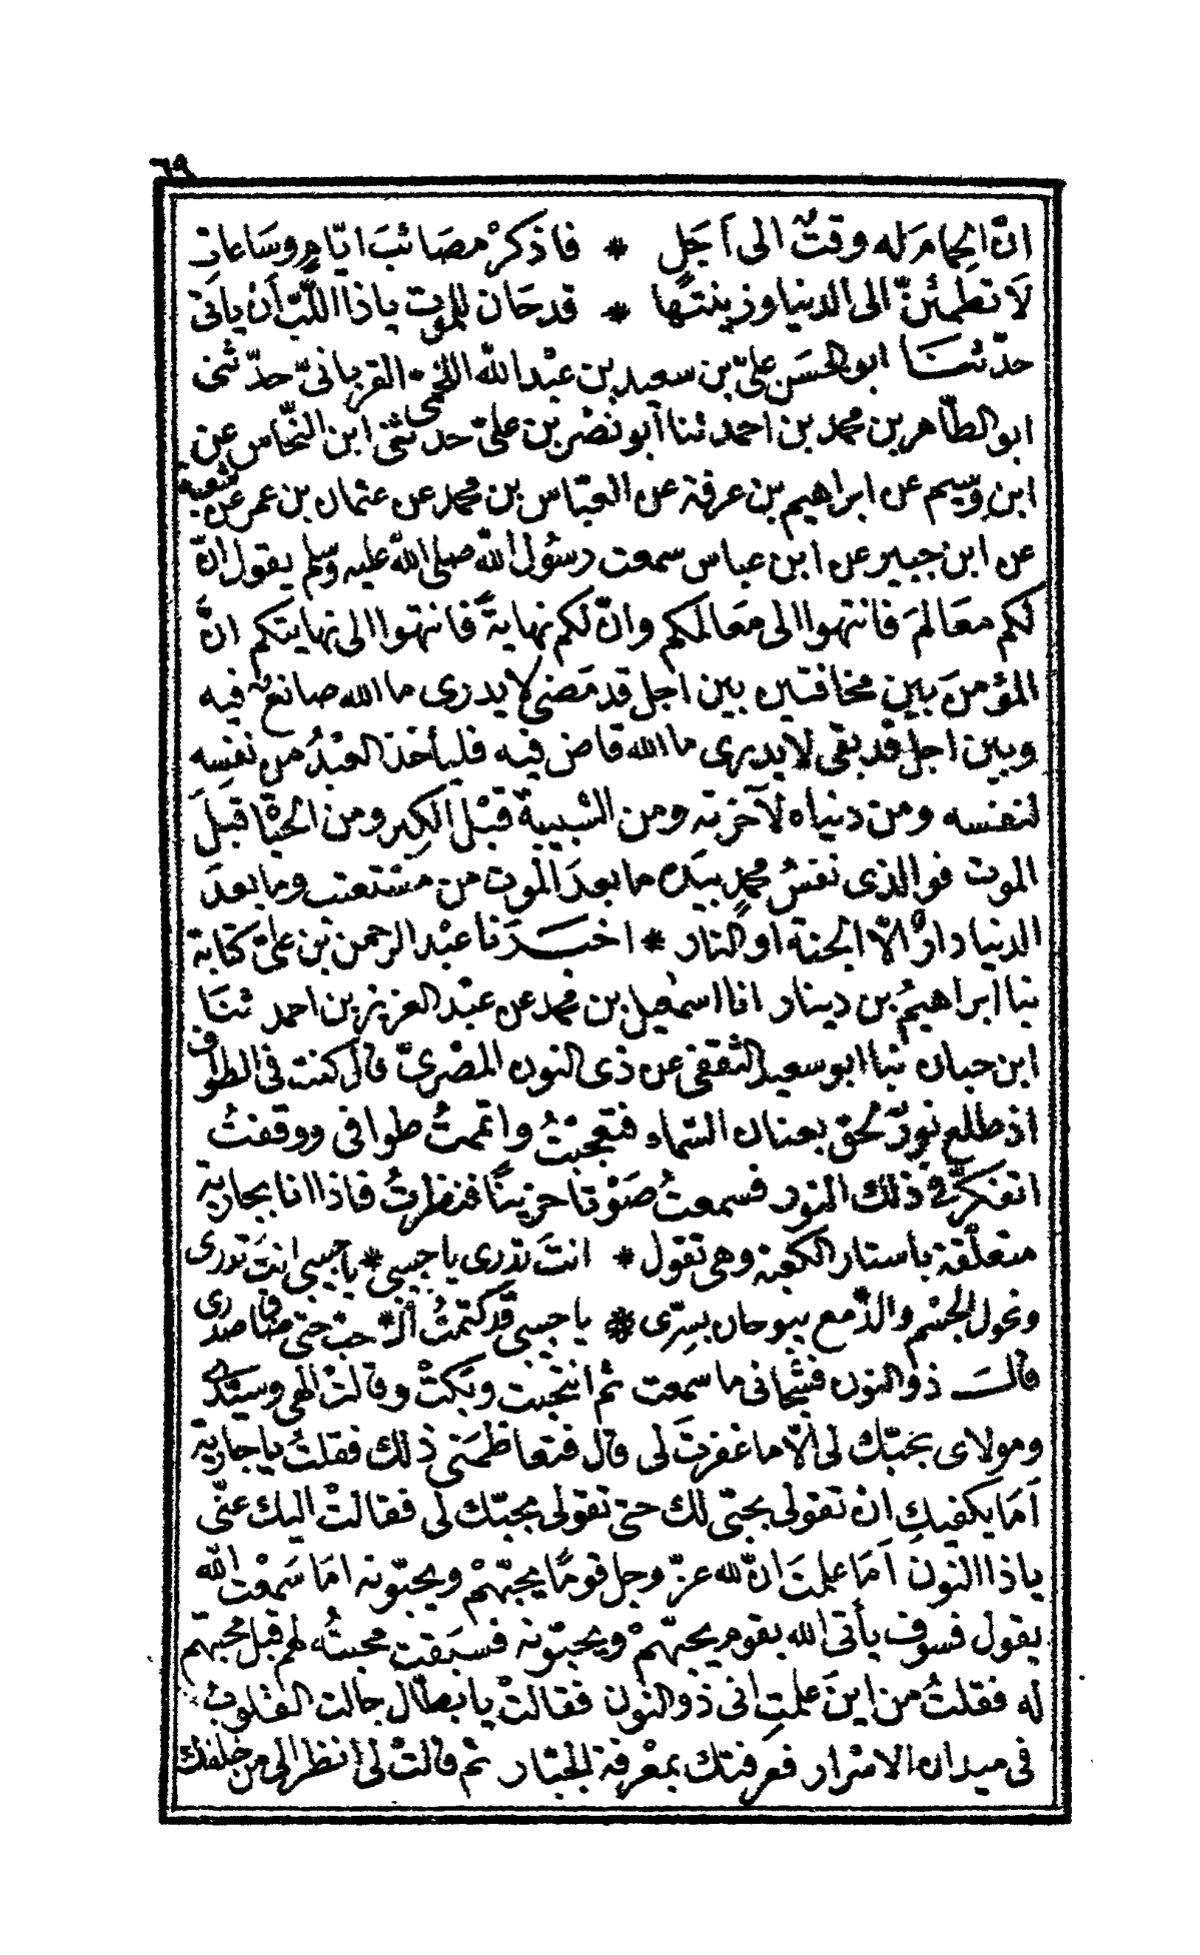 ٦٩
انّ الحِمامَ له وقتٌ الى اَجَلٍ * فاذكرْ مصَائبَ ايّامٍ وسَاعاتِ
لَا تطمئنّ الى الدنيا وزينتها * قد حَان للموت ياذا اللّبّ أنْ ياتى
حدّثنَا ابو الحسَن علىّ بن سعيد بن عبْد الله اللخمى القربانىّ حدّثنى
ابو الطّاهر بن محمد بن احمد ثنا أبو نصْر بن علىّ حدثنى ابن النحّاس عن
ابن وسيم عن ابراهيم بن عرفة عن العبّاس بن محمد عن عثمان بن عمر عن شعبة
عن ابن جبير عن ابن عباس سمعت رسُول الله صلى الله عليه وسلم يقول انّ
لكم معَالمَ فانتهوا الى معَالمكم وانّ لكم نهايةً فانتهوا الى نهايتكم انّ
المؤمنَ بين مخافتين بين اجل قد مَضى لا يدرى ما الله صانعٌ فيه
وبين اجل قد بقى لا يدرى ما الله قاض فيه فليأخذ العبْدُ من نفسِه
لنفسه ومن دنياه لآخرته ومن الشبيبة قبْل الكِبر ومن الحياة قبلَ
الموت فوالذى نفسُ محمدٍ بيَده ما بعدَ الموت من مسْتعتب وما بعدَ
الدنيا دارٌ الّا الجنة او النار * اخبَرَنا عبْد الرحمن بن علىّ كتابة
نبا ابراهيمُ بن دينار انا اسمٰعيل بن محمد عن عبْد العزيز بن احمد ثنَا
ابن حبان نبا ابو سعيد الثقفى عن ذى النون المصْرىّ قال كنت فى الطواف
اذ طلع نورٌ لحق بعنان السّماء فتعجبْتُ واتممتُ طوافى ووقفتُ
اتفكّر فى ذلك النور فسمعتُ صَوْتا حزينًا فنظرتُ فاذا انا بجارية
متعلّقة بأستار الكعْبة وهى تقول * انتَ تدرى يا حبيبى * يا حبيبى انتَ تدرى
ونحول الجسْم والدّمع يبوحان بسِرّى * يا حبيبى قد كتمتُ الـ * حبّ حتى ضاق صدرى
قالـَ ذو النون فشجانى ما سمعت ثم انتحبت وبَكتْ وقالتْ الهى وسيّدى
ومولاى بحبّك لى الّا ما غفرتَ لى قال فتعاظمَنى ذلك فقلتُ يا جارية
اَمَا يكفيكِ انْ تقولى بحبّى لك حتى تقولى بحبّك لى فقالتْ اليك عنّى
ياذا النون اَمَا علمتَ انّ لله عزّ وجل قومًا يحبّهمْ ويحبّونه امَا سَمعْت الله
يقول فسوف يأتى الله بقوم يحبّهمْ ويحبّونه فسبَقت محبتُه لهم قبل محبّتهم
له فقلتُ من اينَ علمتِ انى ذو النون فقالتْ يا بطّال جالت القلوب
فى ميدان الاسْرار فعرفتك بمعْرفة الجبّار ثم قالتْ لى انظر الى من خلفك